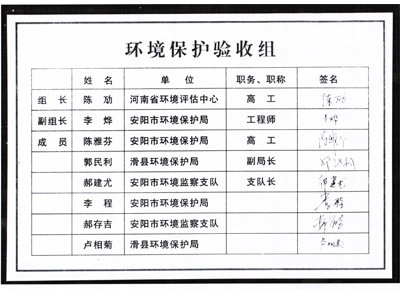 环境保护验收组
姓名 单位 职务、职称 签名
组长 陈劢 河南省环境评估中心 高工
副组长 李烨 安阳市环境保护局 工程师
成员 陈雅芬 安阳市环境保护局 高工
郭民利 滑县环境保护局 副局长
郝建尤 安阳市环境监察支队 支队长
李程 安阳市环境保护局
郝存吉 安阳市环境监察支队
卢相菊 滑县环境保护局